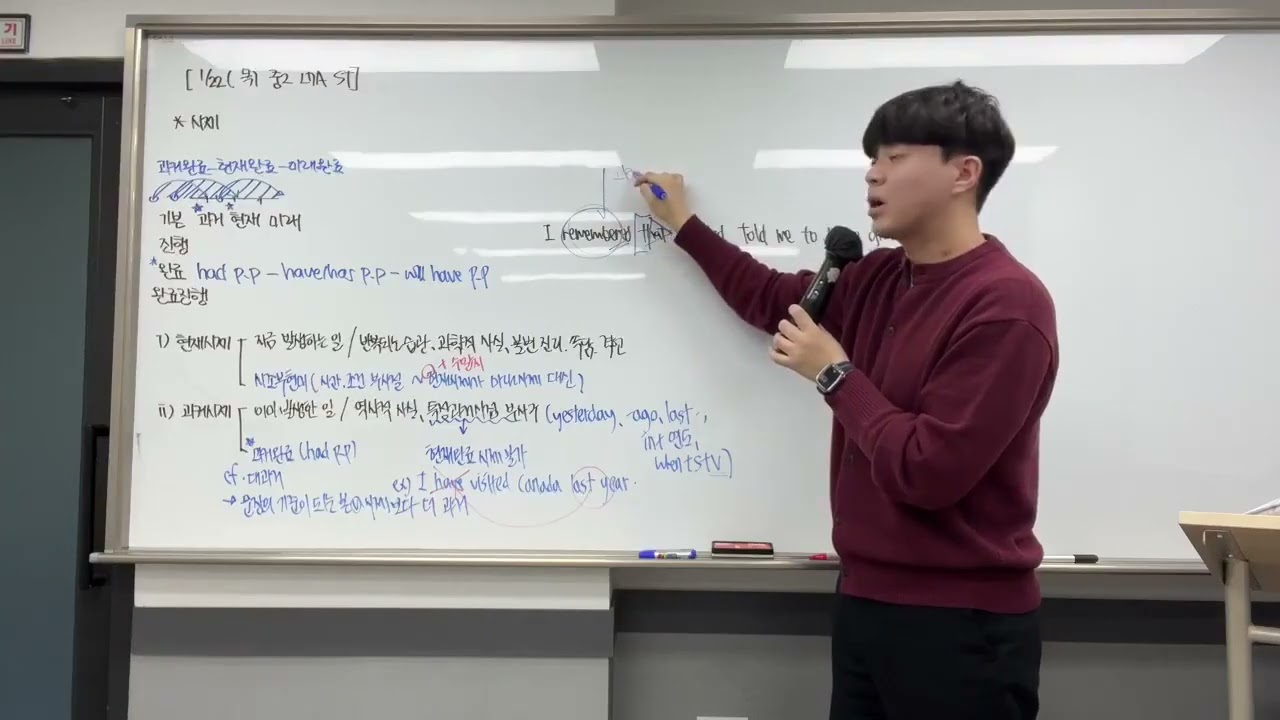 기
[ 1/22( 목) 중2 LMA ST]
* 시제
과거완료-현재완료-미래완료
기본 과거 현재 미래
진행
*완료 had p.p - have/has p.p - will have p.p
완료진행
I remembered that told me to
i) 현재시제 지금 발생하는 일 / 반복되는 습관, 과학적 사실, 불변 진리, 속담, 격언
+ 수일치
시조부현미 (시간.조건 부사절 ~ 현재시제가 미래시제 대신)
ii) 과거시제 이미 발생한 일 / 역사적 사실, 특정과거시점 부사구 (yesterday, -ago, last ~,
in+연도,
when+S+V)
과거완료 (had p.p) 현재완료 시제 불가
cf. 대과거 ex) I have visited Canada last year.
→ 문장의 기준이 되는 본V 시제보다 더 과거